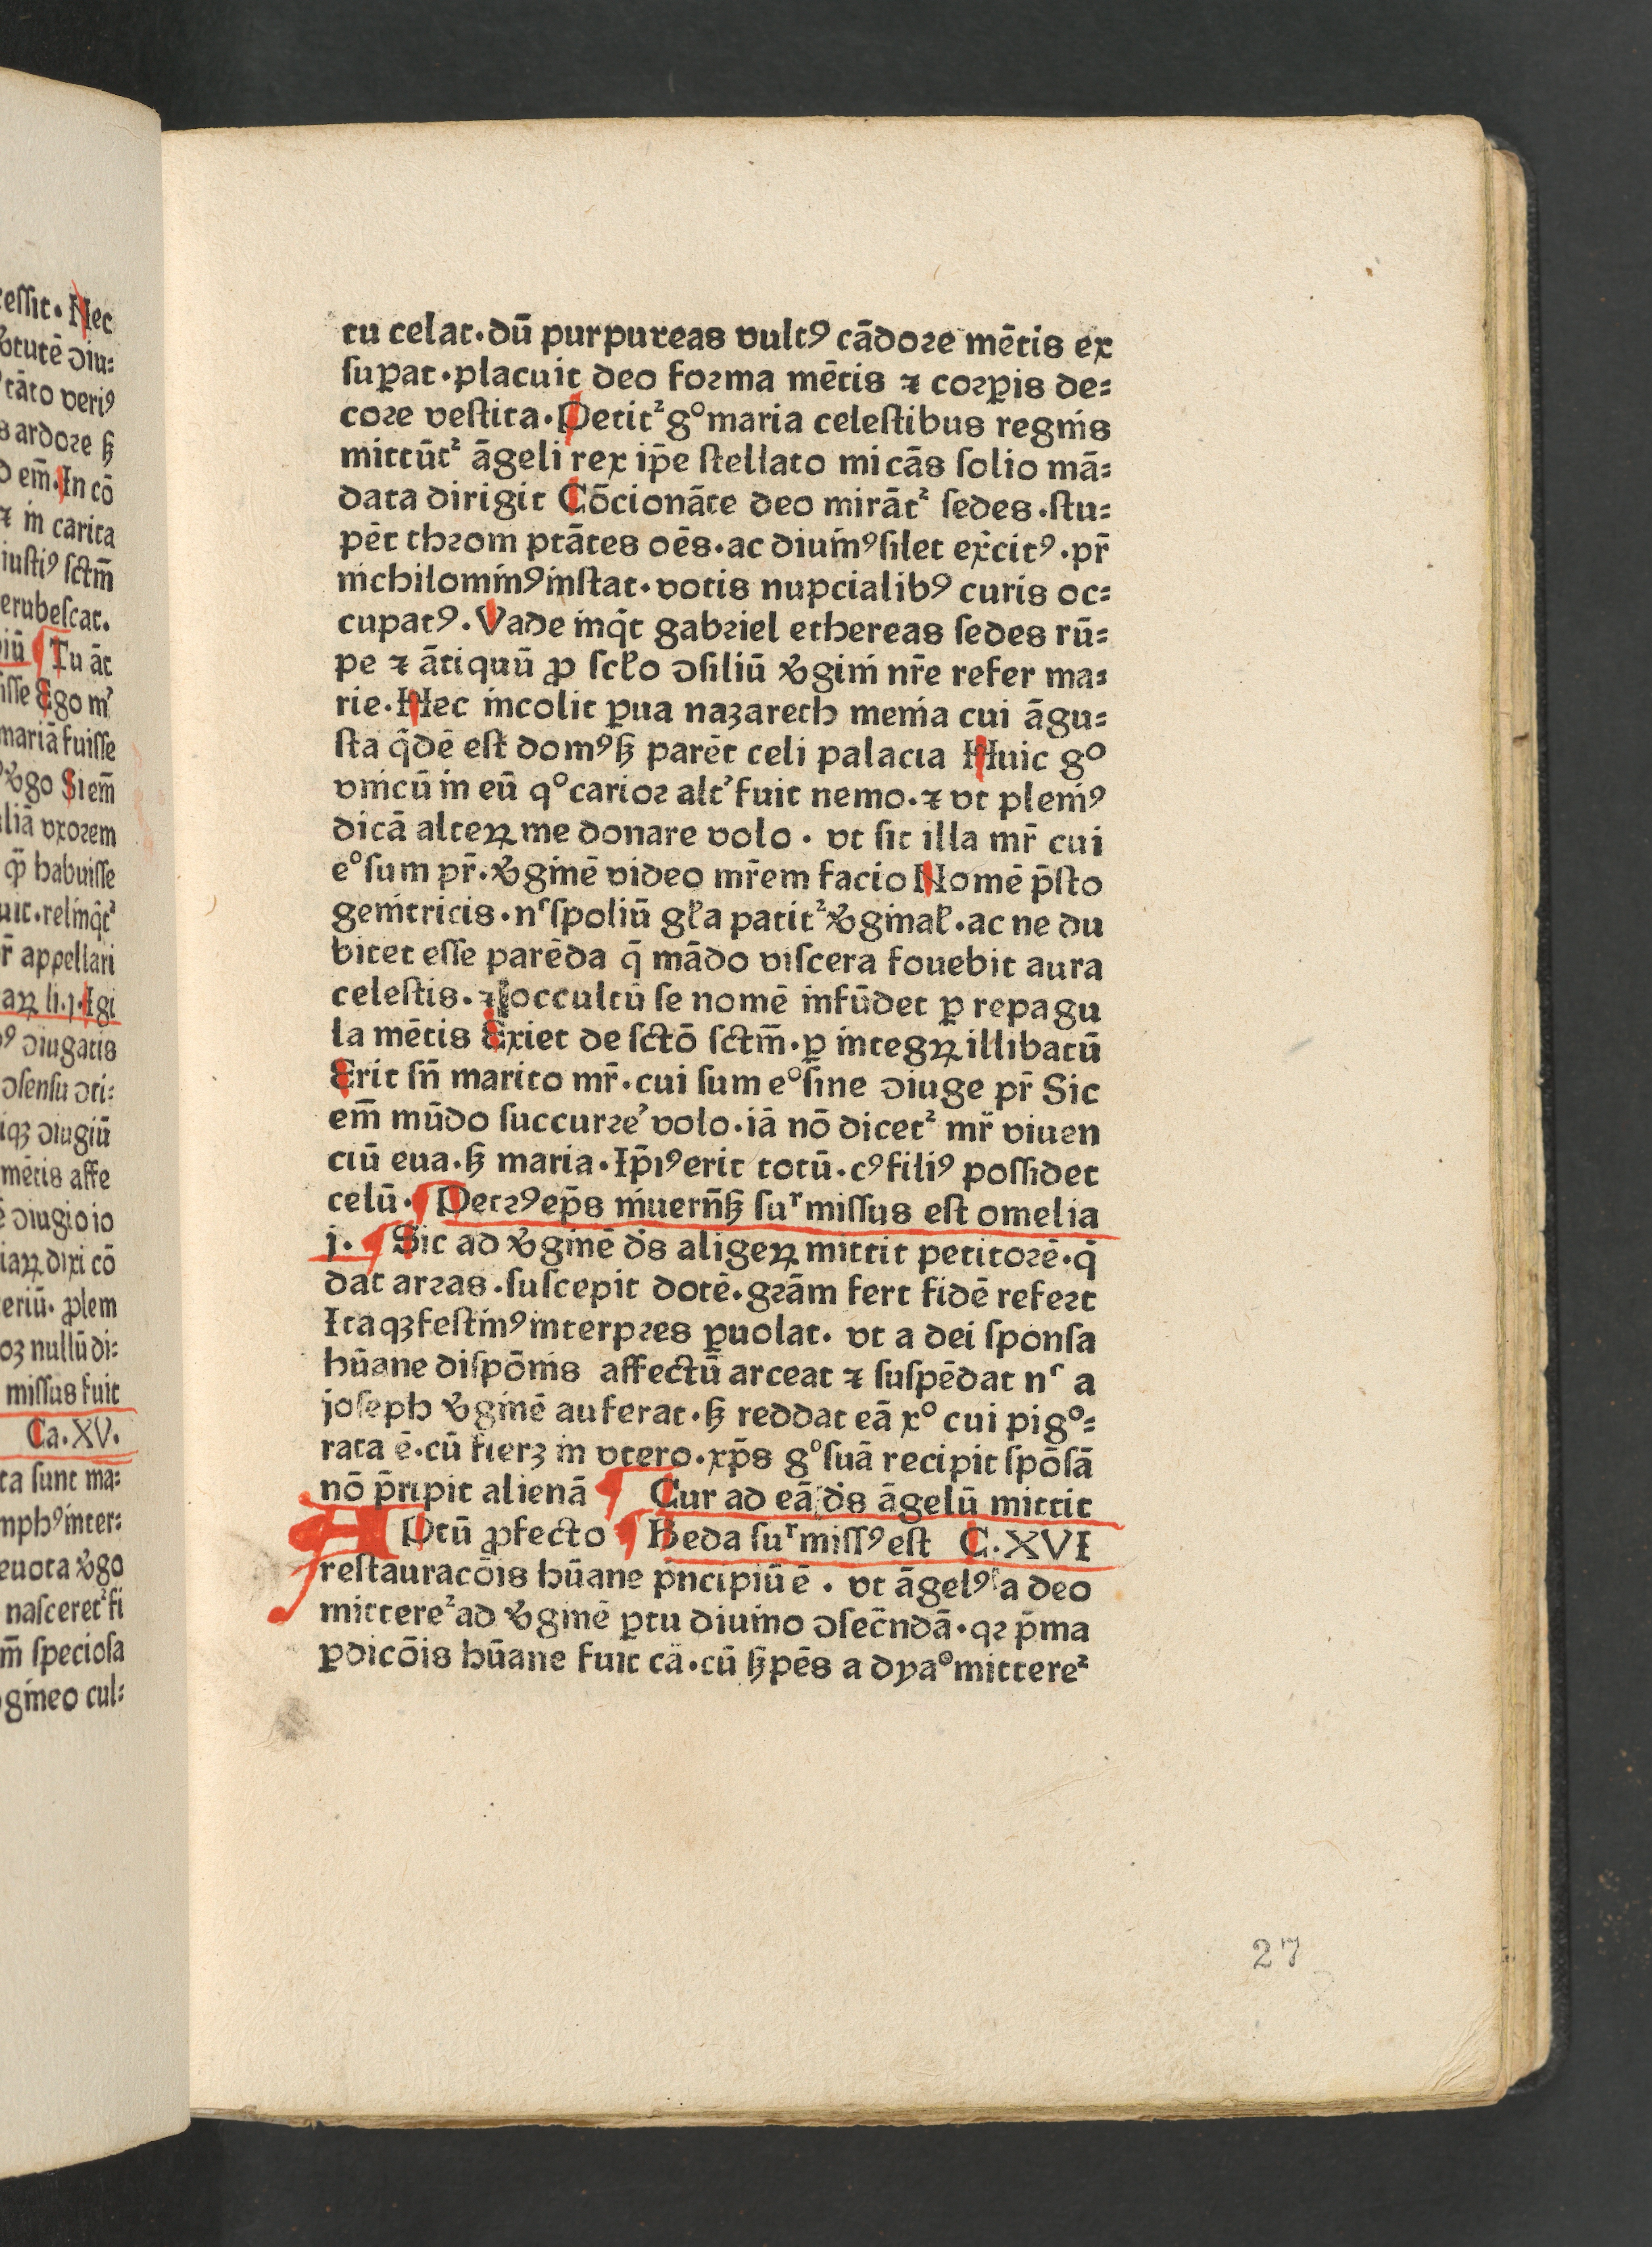 essit. Nec
ꝟtutē ↄiu⸗
tāto veriꝰ
s ardoꝛe ß
em̄. In cō
⁊ in carita
iustiꝰ sctm̄
erubescat.
iū ¶ Tu āt
isse Ego mʼ
mariā fuisse
ꝟgo Si em̄
liā vxoꝛem
qꝫ habuisse
uit. relinq̄tᷣ
r̄ appellari
aꝝ li. j. Igi
ꝰ ↄiugatis
ↄsensu ↄti⸗
iqꝫ ↄiugiū
mētis affe
ē ↄiugio io
iaꝝ dixi cō
eriū. ꝓlem
oꝫ nullū di⸗
missus fuit
Ca. XV.
ta sunt ma⸗
mphꝰ inter⸗
euota ꝟgo
nasceretᷣ fi
m̄ speciosa
gineo cul⸗
tu celat. dū purpureas vultꝰ cādoꝛe mētis ex
suꝑat. placuit deo foꝛma mētis ⁊ coꝛꝑis de⸗
coꝛe vestita. Petitᷣ gͦ maria celestibus regnis
mittūtᷣ āgeli rex ip̄e stellato micās solio mā⸗
data dirigit Cōcionāte deo mirātᷣ sedes. stu⸗
pēt thꝛoni ptātes oēs. ac diuinꝰ silet ex̄citꝰ. pr̄
nichilominꝰ instat. votis nupcialibꝰ curis oc⸗
cupatꝰ. Vade inq̄t gabꝛiel ethereas sedes rū⸗
pe ⁊ ātiquū ꝓ scło ↄsiliū ꝟgini nr̄e refer ma⸗
rie. Hec incolit ꝑua nazareth menia cui āgu⸗
sta q̄dē est domꝰ ß parēt celi palacia Huic gͦ
vnicū in eū qͦ carioꝛ altʼ fuit nemo. ⁊ vt plenꝰ
dicā alteꝝ me donare volo. vt sit illa mr̄ cui
eͦ sum pr̄. ꝟginē video mr̄em facio Nomē p̄sto
genitricis. nͨ spoliū gła patitᷣ ꝟginał. ac ne du
bitet esse parēda q̄ mādo viscera fouebit aura
celestis. ⁊ occultū se nomē infūdet ꝑ repagu
la mētis Exiet de sctō sctm̄. ꝑ integꝝ illibatū
Erit sn̄ marito mr̄. cui sum eͦ sine ↄiuge pr̄ Sic
em̄ mūdo succurꝛeʼ volo. iā nō dicetᷣ mr̄ viuen
ciū eua. ß maria. Ip̄iꝰ erit totū. cꝰ filiꝰ possidet
celū. ¶ Petꝛꝰ ep̄s niuern̄ß suʳ missus est omelia
j. ¶ Sic ad ꝟginē ds̄ aligeꝝ mittit petitoꝛē. q̄
dat arꝛas. suscepit dotē. gꝛām fert fidē refeꝛt
Itaqꝫ festinꝰ interpꝛes ꝑuolat. vt a dei sponsa
hūane dispōnis affectū arceat ⁊ suspēdat nͨ a
joseph ꝟginē auferat. ß reddat eā xͦ cui pigͦ⸗
rata ē. cū fierꝫ in vtero. xp̄s gͦ suā recipit spōsā
nō p̄ripit alienā ¶ Cur ad eā ds̄ āgelū mittit
APtū ꝓfecto ¶ Beda suʳ missꝰ est C. XVI
restauracōis hūane p̄ncipiū ē. vt āgelꝰ a deo
mittereᷣ ad ꝟginē ꝑtu diuino ↄsec̄ndā. qꝛ p̄ma
ꝑdicōis hūane fuit cā. cū ßpēs a dyaͦ mittereᷣ
27